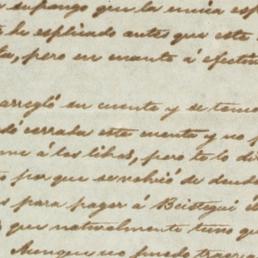 supongo que la única esp
he esplicado antes que este
ta, pero en cuanto á efectiv
arregló su cuenta y se tomo
dó cerrada esta cuenta y no p
me á las libras, pero te lo di
por que se volvió de deuda
s para pagar á Beistegui
que naturalmente tuvo qu
Aunque no puedo traer